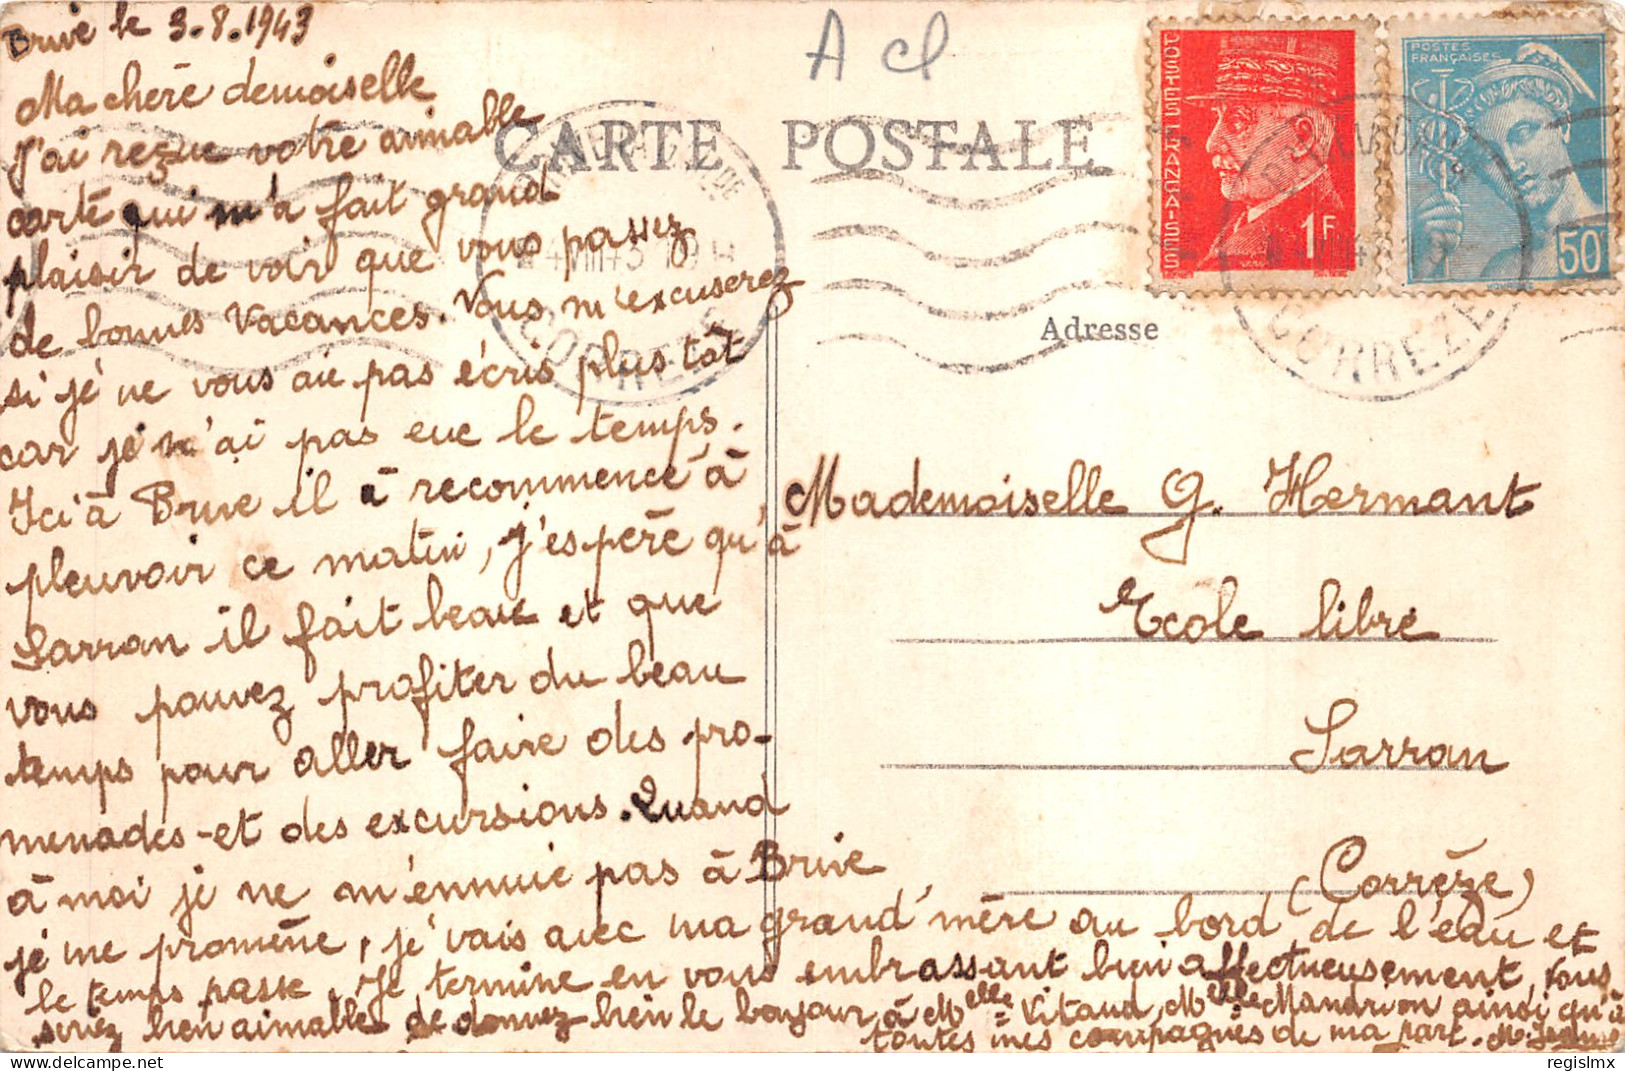 Brive le 3-8.1943
Ma chère demoiselle
J'ai reçue votre aimable
carte qui m'a fait grand
plaisir de voir que vous passez
de bonnes vacances. Vous m'excuserez
si je ne vous ai pas écris plus tôt
car je n'ai pas eue le temps.
Ici à Brive il à recommencé à
pleuvoir ce matin, j'espère qu'à
Sarran il fait beau et que
vous pouvez profiter du beau
temps pour aller faire des pro-
menades et des excursions. Quand
à moi je ne m'ennuie pas à Brive
je me promène, je vais avec ma grand'mère au bord de l'eau et
le temps passe. Je termine en vous embrassant bien affectueusement, vous
seriez bien aimable de donnez bien le bonjour à Melle Vitaud, Melle Mandrion ainsi qu'à
toutes mes compagnes de ma part.
A cl
CARTE POSTALE
POSTES FRANÇAISES
1F
POSTES
FRANÇAISES
50
CORRÈZE
CORRÈZE
Adresse
Mademoiselle G. Hermant
Ecole libre
Sarran
(Corrèze)
regislmx